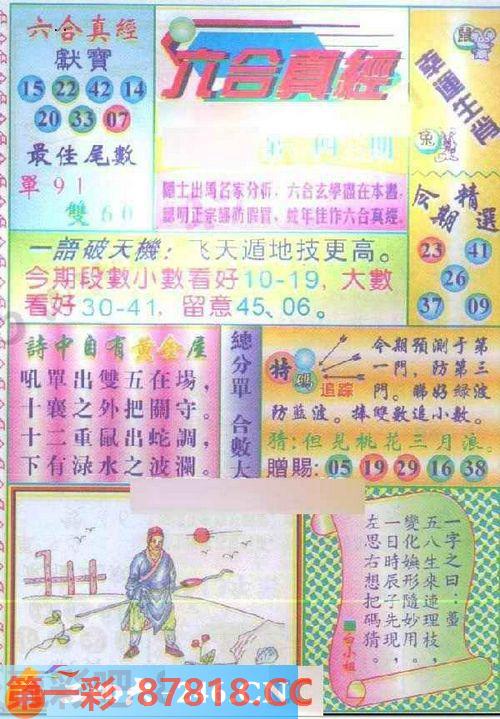 六合真經
獻寶
15 22 42 14
20 33 07
最佳尾數
單91
雙60
六合真經
隱士出馬名家分析，六合玄學盡在本書，
認明正宗謹防假冒，蛇年佳作六合真經。
幸運生肖
鼠
兔
今期精選
23 41
26
37 09
一語破天機：飞天遁地技更高。
今期段數小數看好10-19，大數
看好30-41，留意45、06。
詩中自有黃金屋
吼單出雙五在場，
十襄之外把關守。
十二重鼠出蛇調，
下有渌水之波瀾。
總分單 合數大
特碼
追踪
今期預測于第
一門，防第三
門。睇好綠波
防藍波。捧雙數追小數。
猜：但見桃花三月浪。
贈賜：05 19 29 16 38
一字之曰：蠆
五八生來連理枝，
變化嬎形隨妙用。
一日時辰子先現，
左思右想把碼猜。
白小姐
第一彩 87818.CC
246.CN